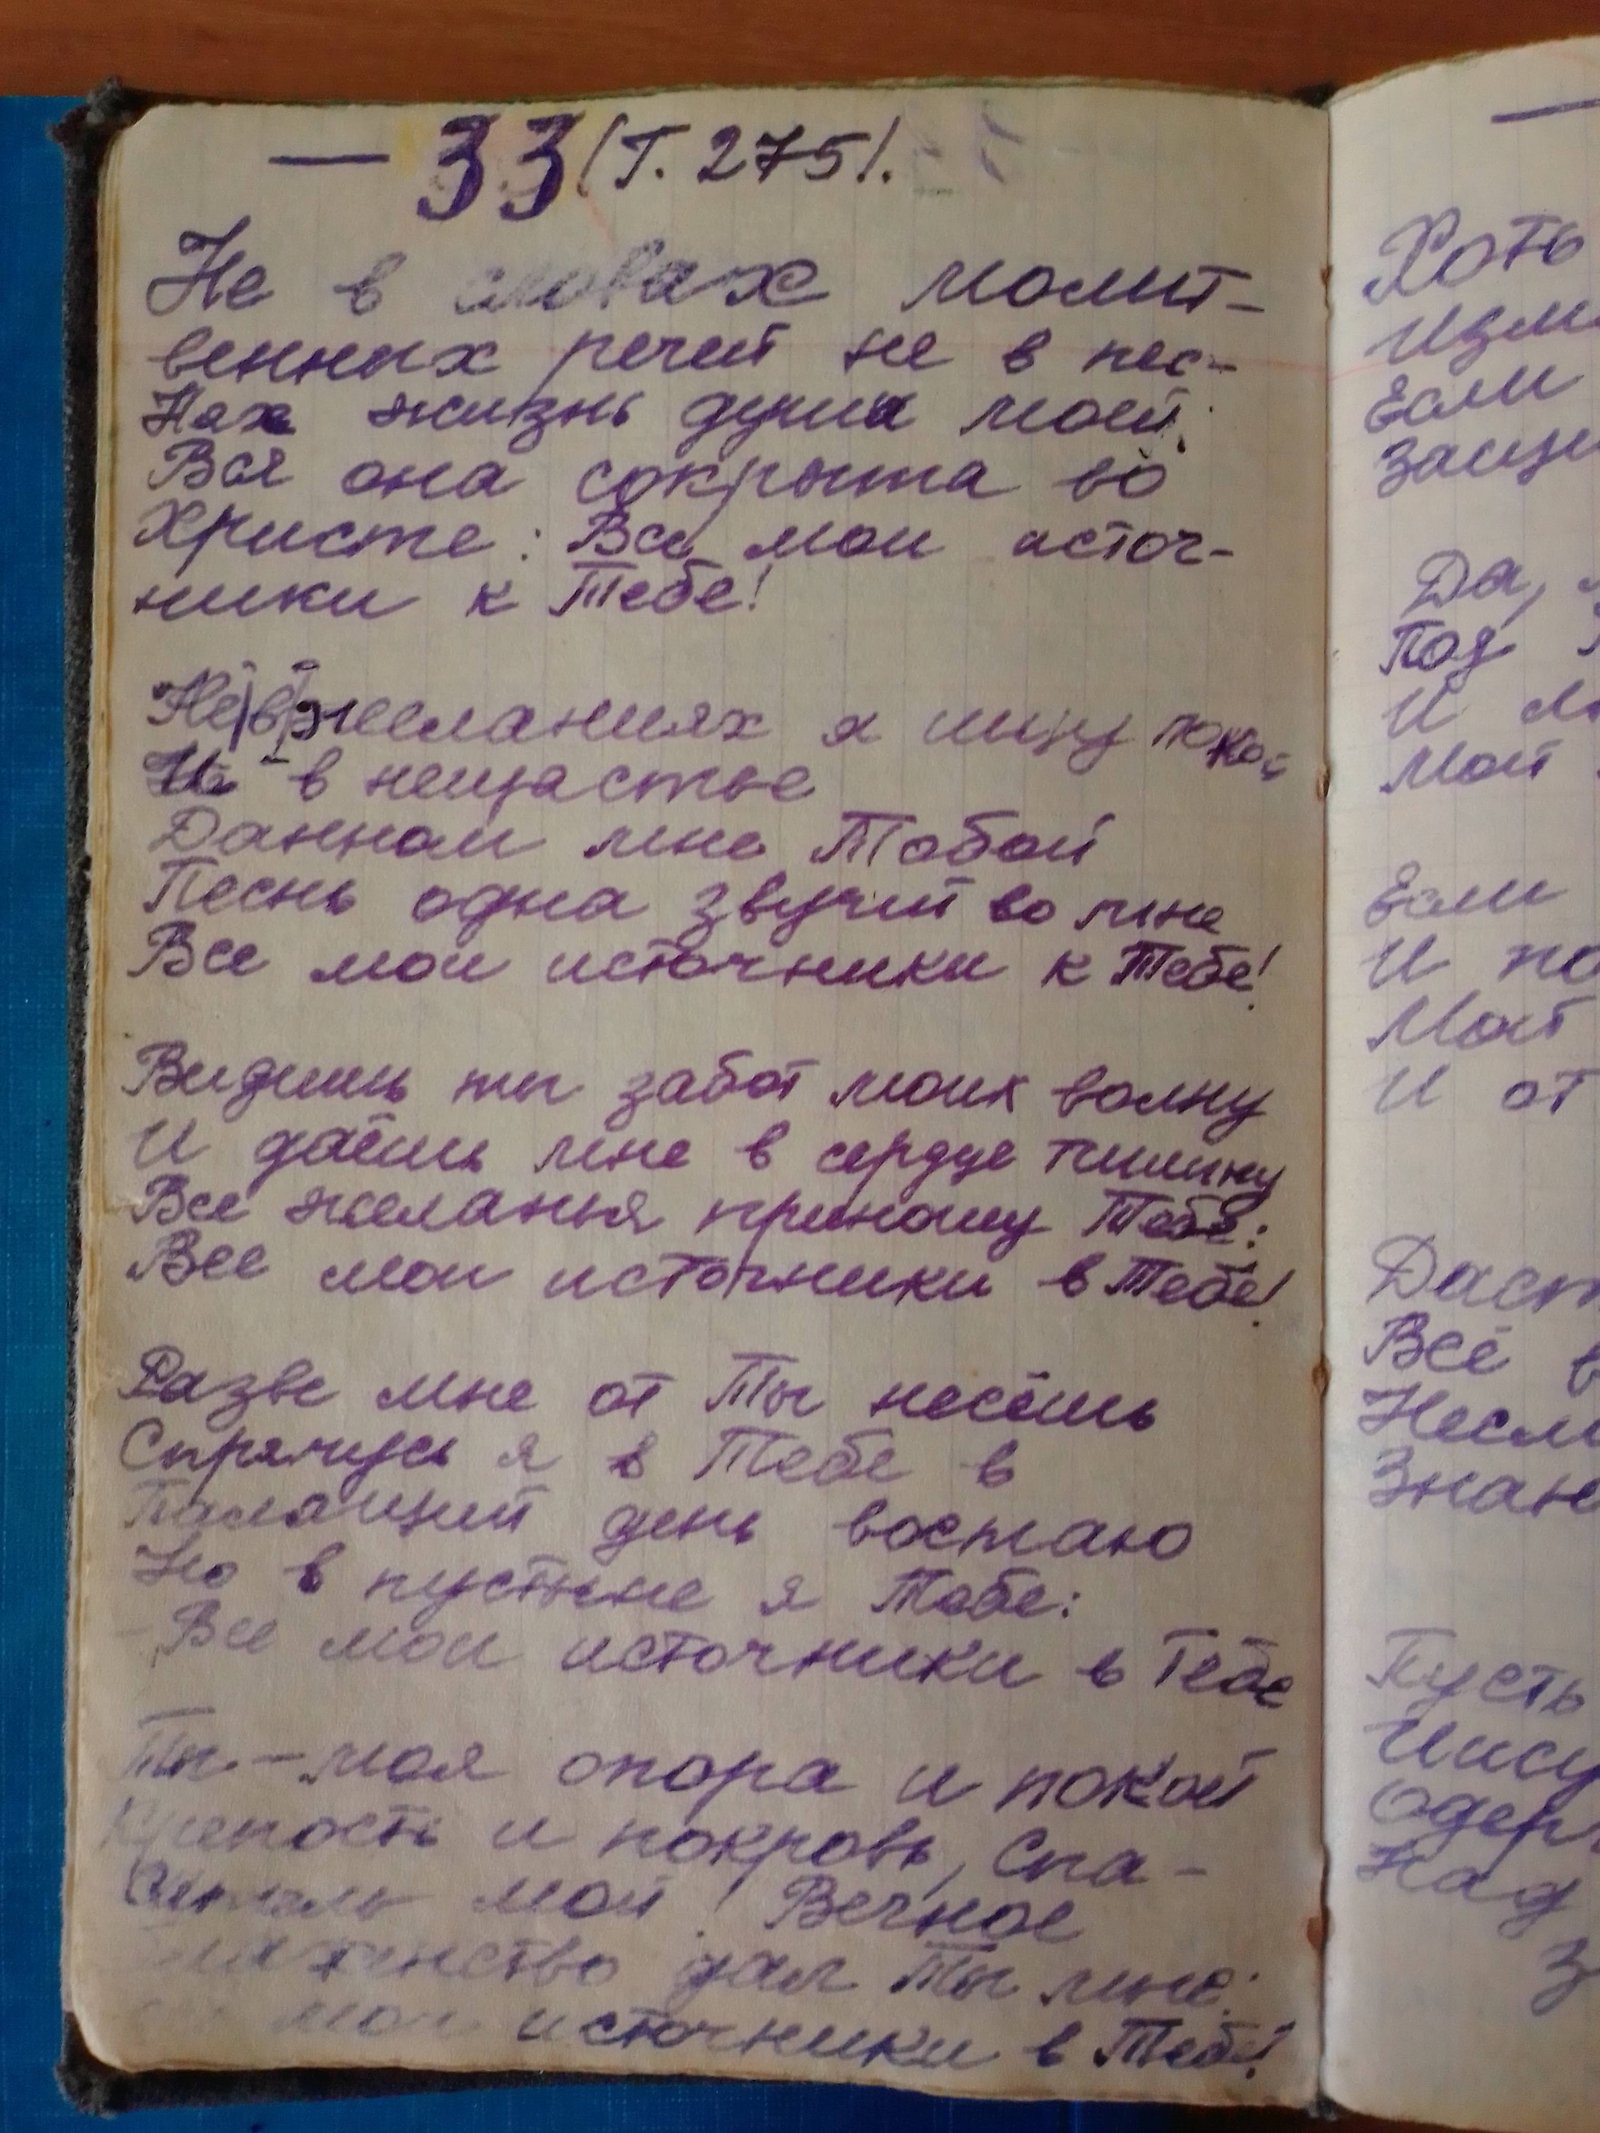 — 33 (Т. 275).
Не в словах молит-
венных речей не в пес-
нях жизнь души моей:
Вся она сокрыта во
Христе: Все мои источ-
ники к Тебе!
Не в желаниях я ищу покой
И в нещастье
Данном мне Тобой
Песнь одна звучит во мне
Все мои источники к Тебе!
Видишь ты забот моих волну
И даёшь мне в сердце тишину
Все желанья приношу Тебе:
Все мои источники в Тебе!
Разве мне от Ты несёшь
Спрячусь я в Тебе в
Палящий день востаю
Но в пустыне я Тебе:
Все мои источники в Тебе
Ты – моя опора и покой
Крепость и покровь, Спа-
ситель мой! Вечное
дал Ты мне:
мои источники в Тебе!
—
Хоть
Изм
Если
Защи
Да,
Под
И
Мой
Если
И по
Мой
И от
Даст
Всё в
Несл
Знан
Пусть
Иису
Одер
Над
З